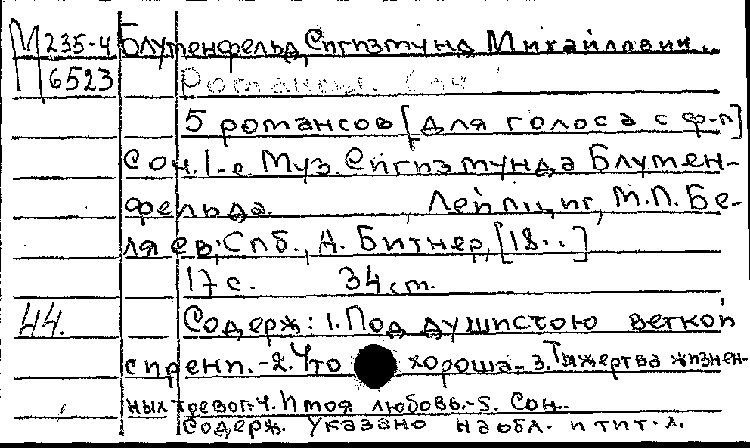 М 235-4 Блуменфельд, Сигизмунд Михайлович.
6523 Романсы. Соч
5 романсов [для голоса с ф-п]
Соч. 1-е Муз. Сигизмунда Блумен-
фельда. Лейпциг, М.П. Бе-
ляев; Спб., А. Битнер, [18..]
17 с. 34 cm.
44. Содерж: 1. Под душистою веткой
сирени. - 2. Что хороша. - 3. Ты жертва жизнен-
ных тревог. 4. И моя любовь. - 5. Сон.
Содерж. указано на обл. и тит. л.